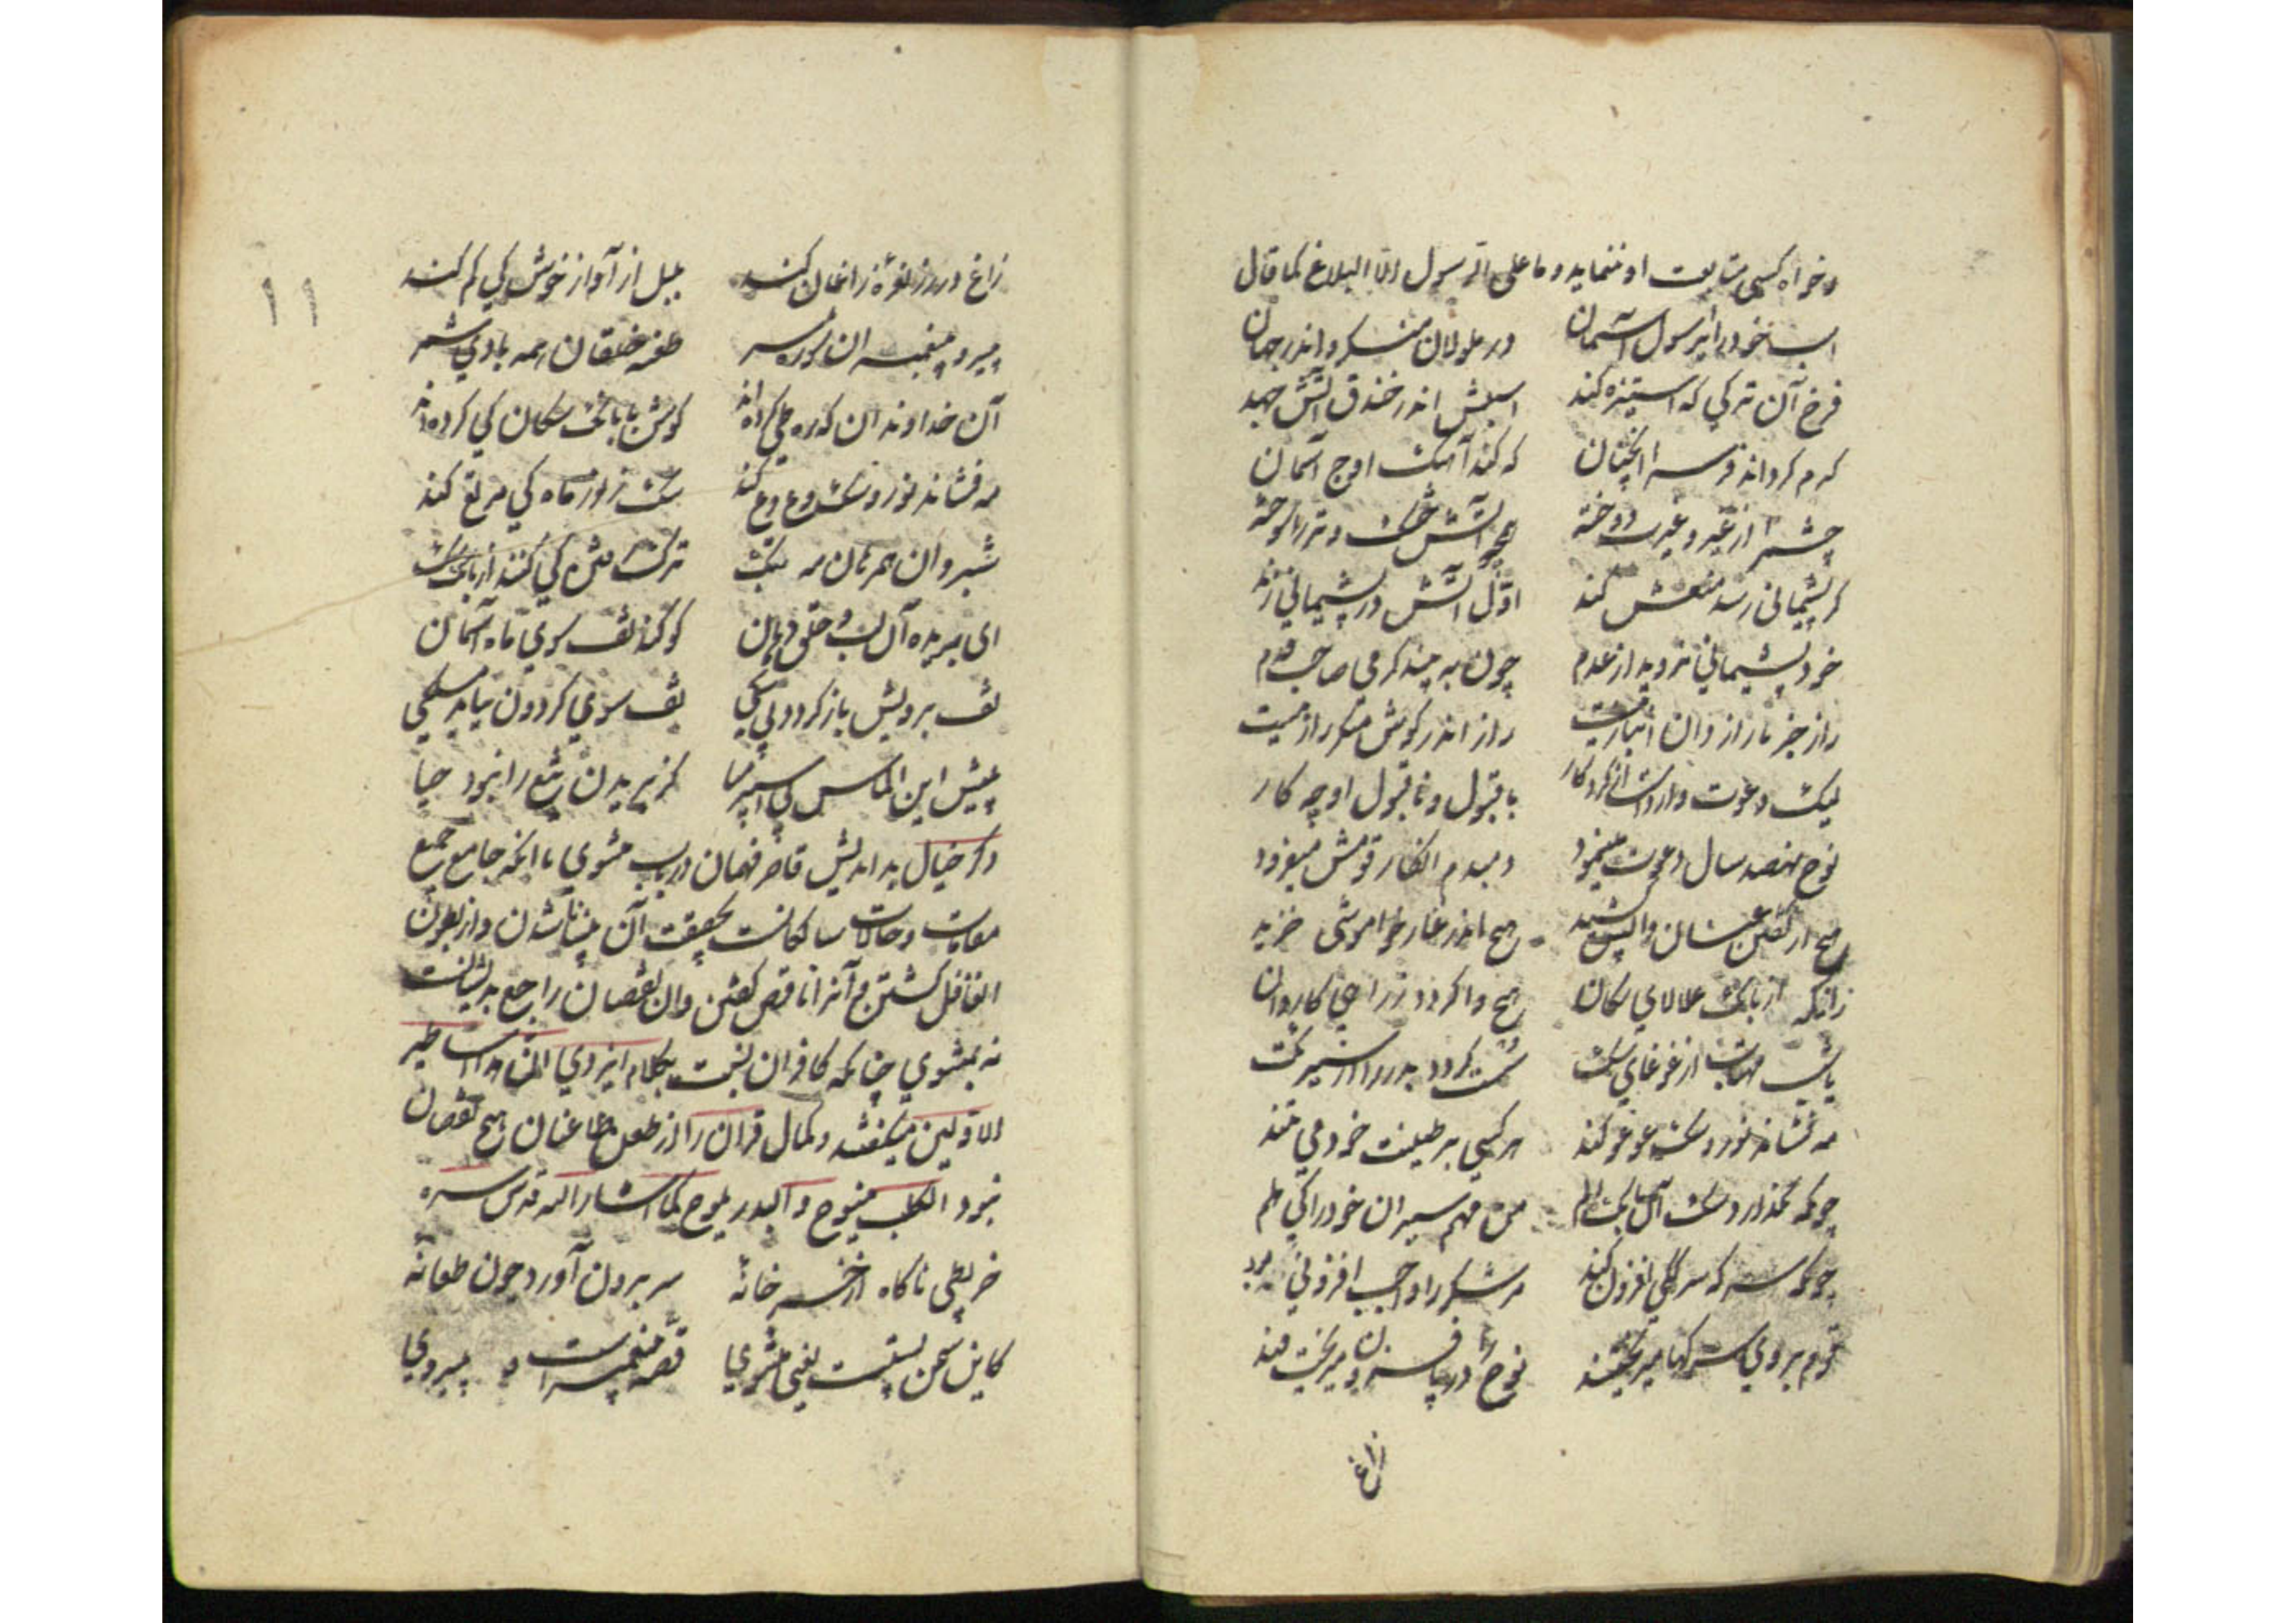 و خواه کسی متابعت او ننماید و ما علی الرسول الا البلاغ کما قال
اسب خود را ای رسول آسمان در ملولان منگر و اندر جهان
فرخ آن ترکی که استیزه کند اسبش اندر خندق آتش جهد
گرم گرداند فرس را آنچنان که کند آهنگ اوج آسمان
چشم را از غیر و غیرت دوخته همچو آتش خشک و تر را سوخته
گر پشیمانی رسد منعش کند اول آتش در پشیمانی زند
خود پشیمانی نروید از عدم چون ببیند گرمی صاحب قدم
راز جز با رازدان انباز نیست راز اندر گوش منکر راز نیست
لیک دعوت وارد است از کردگار با قبول و ناقبول او چه کار
نوح نهصد سال دعوت مینمود دمبدم انکار قومش میفزود
هیچ از گفتن عنان واپس کشید هیچ اندر غار خاموشی خزید
زانکه از بانگ علالای سگان هیچ واگردد ز راهی کاروان
یا شب مهتاب از غوغای سگ سست گردد بدر را در سیر تگ
مه فشاند نور و سگ عوعو کند هر کسی بر طینت خود می تند
چونکه نگذارد سگ آن بانگ سقم من مهم سیران خود را کی هلم
چونکه سرکه سرکگی افزون کند مر شکر را واجب افزونی بود
قوم بر وی سرکها میریختند نوح را دریا فزون میریخت قند
زاغ
۱۱
زاغ در رز نعره زاغان کند بلبل از آواز خوش کی کم کند
طعنه خلقان همه بادی شمر
آن خداوندان که ره طی کرده اند گوش با بانگ سگان کی کرده اند
مه فشاند نور و سگ وع وع کند سگ ز نور ماه کی مرتع کند
شب روان همرهان مه بتگ ترک رفتن کی کنند از بانگ سگ
ای بریده آن لب و حلق و دهان کو کند تف سوی ماه آسمان
تف برویش باز گردد بی شکی تف سوی گردون نیابد مسلکی
پیش این الماس بی اسپر میا کز بریدن تیغ را نبود حیا
ذکر خیال بداندیش قاصر فهمان در باب مثنوی با آنکه جامع جمیع
مقامات و حالات سالکانست بحقیقت آن بینا ناشدن و از بطون
آن غافل گشتن و آنرا ناقص گفتن و آن نقصان راجع بدیشانست
نه بمثنوی چنانکه کافران نسبت بکلام ایزدی ان هذا الا اساطیر
الاولین میگفتند و کمال قرآن را از طعن طاعنان هیچ نقصان
نبود الکلب ینبوح و البدر یلوح کما اشار الیه قدس سره
خربطی ناگاه از خرخانه سر برون آورد چون طعانه
کاین سخن پستست یعنی مثنوی قصه پیغمبر است و پیروی